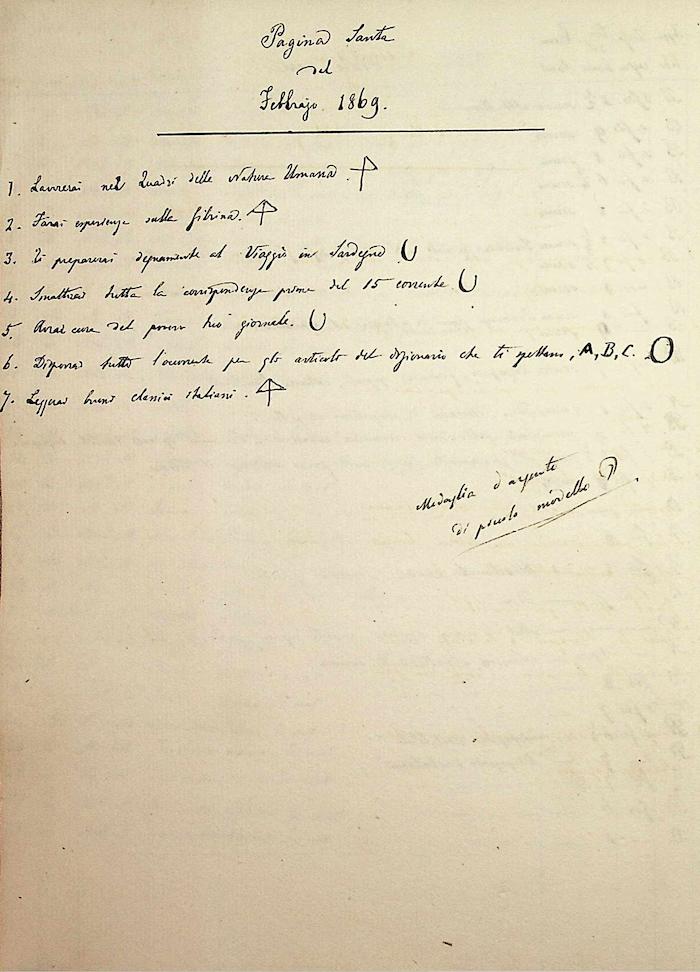 Pagina Santa
del
Febbrajo 1869.
1. Lavorerai nei Quadri della Natura Umana.
2. Farai esperienze sulla fibrina.
3. Ti preparerai degnamente al Viaggio in Sardegna
4. Smaltirai tutta la corrispondenza prima del 15 corrente
5. Avrai cura del povero tuo giornale.
6. Disporrai tutto l'occorrente per gli articoli del dizionario che ti spettano, A, B, C.
7. Leggerai buoni classici italiani.
Medaglia d'argento
di piccolo modello